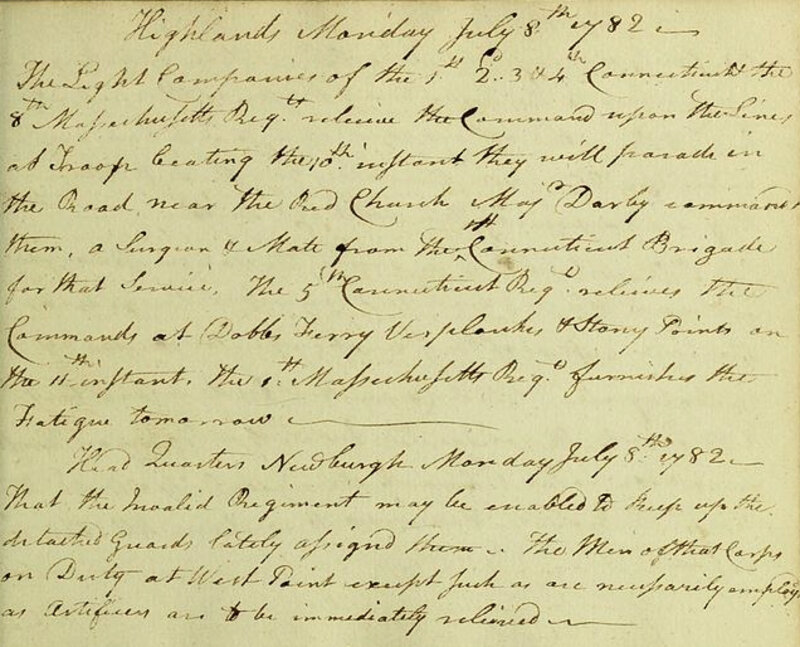 Highlands Monday July 8th 1782
The Light Companies of the 1st 2d 3 & 4th Connecticut & the
8th Massachusetts Regts releive the Command upon the Lines
at Troop beating the 10th instant they will parade in
the Road near the Red Church Majr Darby commands
them, a Surgeon & Mate from the Connecticut Brigade
for that Service. The 5th Connecticut Regt relieves the
Commands at Dobbs Ferry Verplanks & Stony Points on
the 11th instant. the 1st Massachusetts Regt furnishes the
Fatigue tomorrow
Head Quarters Newburgh Monday July 8th 1782
That the Invalid Regiment may be enabled to keep up the
detached Guards lately assignd them. The Men of that Corps
on Duty at West Point except such as are necessarily employ
as Artificers are to be immediately relieved